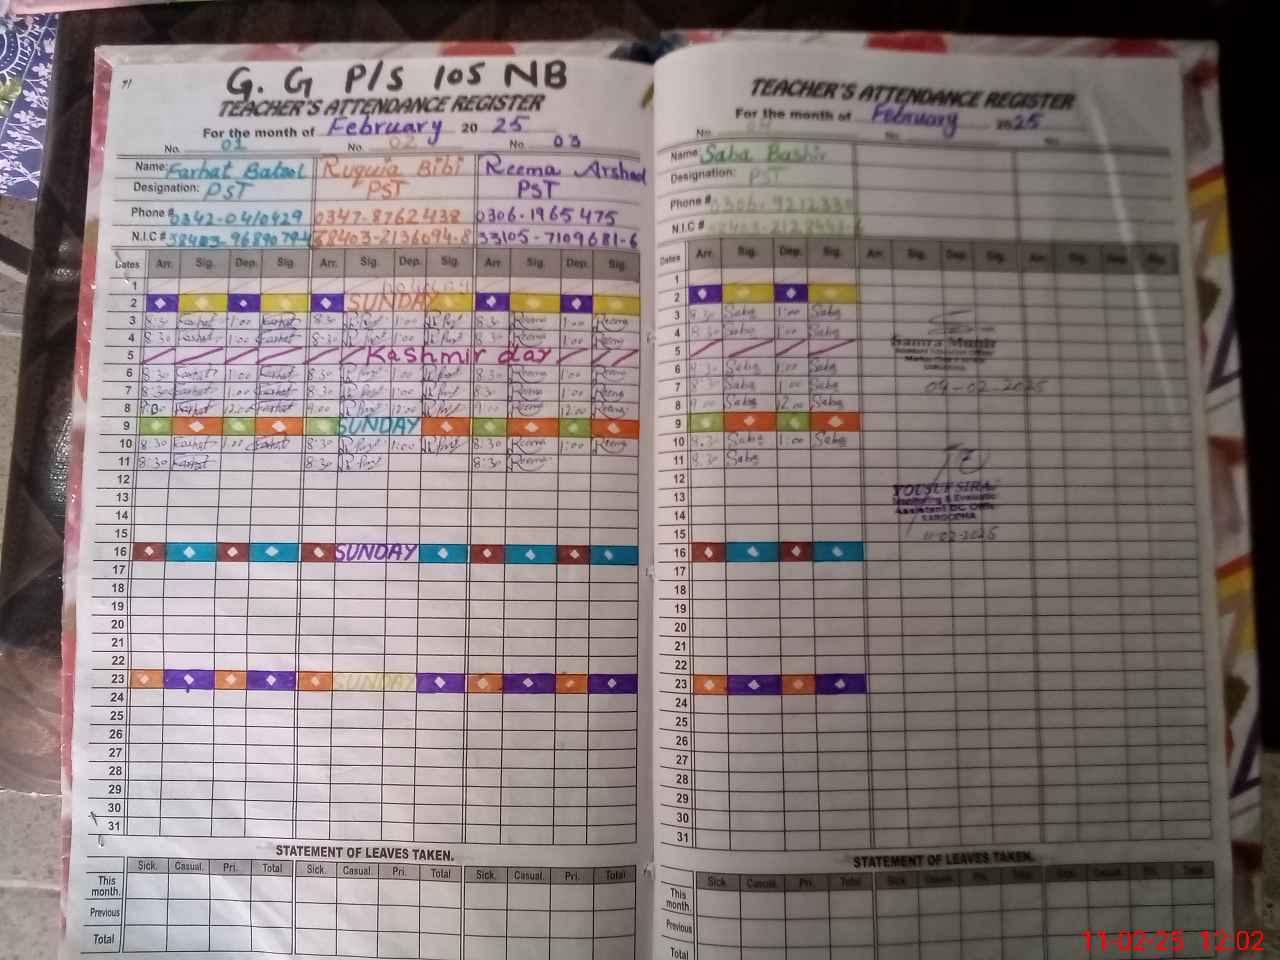 G. G P/S 105 NB
TEACHER'S ATTENDANCE REGISTER
For the month of February 20 25
No. 01 No. 02 No. 03
Name: Farhat Batool Ruquia Bibi Reema Arshad
Designation: PST PST PST
Phone # 0342-0410429 0347-8762438 0306-1965475
N.I.C # 38403-2136094-8 33105-7109681-6
Dates Arr. Sig. Dep. Sig. Arr. Sig. Dep. Sig. Arr. Sig. Dep. Sig.
1
2 SUNDAY
3 8:30 Farhat 1:00 Farhat 8:30 1:00 8:30 Reema 1:00 Reema
4 8:30 Farhat 1:00 Farhat 8:30 1:00 8:30 Reema 1:00 Reema
5 Kashmir day
6 8:30 Farhat 1:00 Farhat 8:30 1:00 8:30 Reema 1:00 Reema
7 8:30 Farhat 1:00 Farhat 8:30 1:00 8:30 Reema 1:00 Reema
8 Farhat 12:00 Farhat 9:00 12:00 9:00 Reema 12:00 Reema
9 SUNDAY
10 8:30 Farhat 1:00 Farhat 8:30 1:00 8:30 Reema 1:00 Reema
11 8:30 Farhat 8:30 8:30 Reema
12
13
14
15
16 SUNDAY
17
18
19
20
21
22
23 SUNDAY
24
25
26
27
28
29
30
31
STATEMENT OF LEAVES TAKEN.
Sick. Casual. Pri. Total Sick. Casual. Pri. Total Sick. Casual. Pri. Total
This month.
Previous
Total
TEACHER'S ATTENDANCE REGISTER
For the month of February 2025
No. No. No.
Name: Saba Bashir
Designation: PST
Phone #
N.I.C #
Dates Arr. Sig. Dep. Sig. Arr. Sig. Dep. Sig. Arr. Sig. Dep. Sig.
1
2
3 8:30 Saba 1:00 Saba
4 8:30 Saba 1:00 Saba
5
6 8:30 Saba 1:00 Saba
7 8:30 Saba 1:00 Saba
8 9:00 Saba 12:00 Saba
9
10 8:30 Saba 1:00 Saba
11 8:30 Saba
12
13
14
15
16
17
18
19
20
21
22
23
24
25
26
27
28
29
30
31
Samra Munir
04-02-2025
Monitoring & Evaluation
Assistant DC Office
SARGODHA
11-02-2025
STATEMENT OF LEAVES TAKEN.
Sick. Casual. Pri. Total Sick. Casual. Pri. Total Sick. Casual. Pri. Total
This month.
Previous
Total
11-02-25 12:02